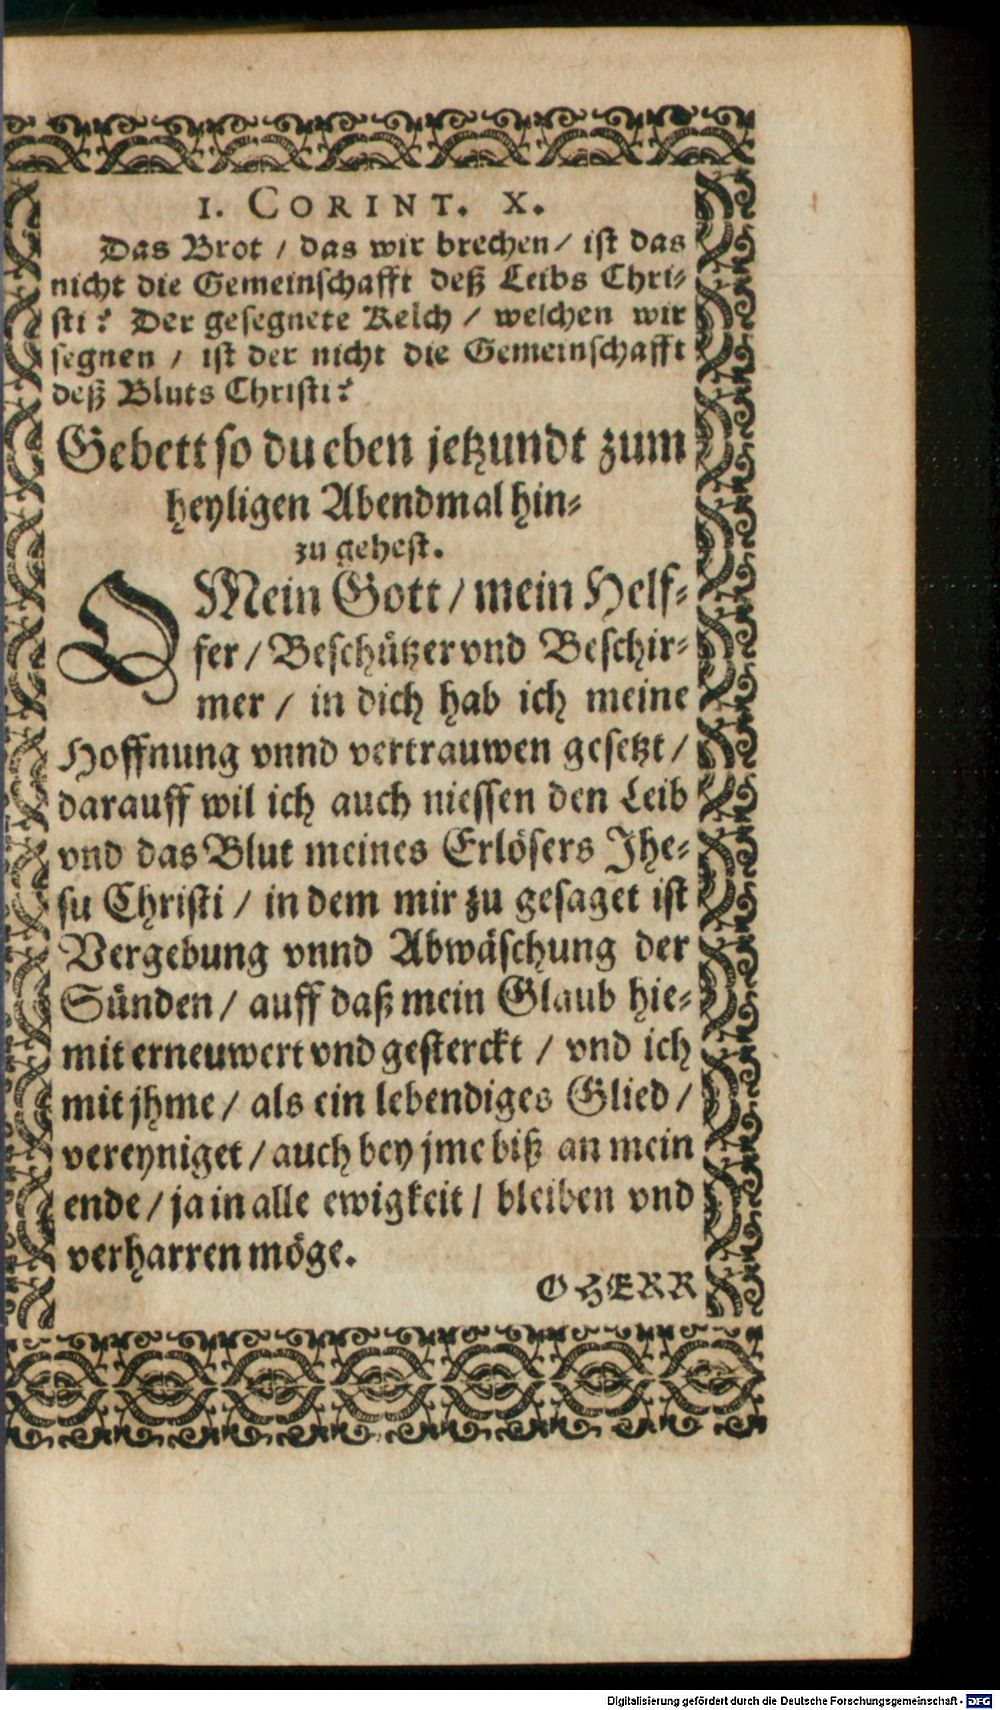 1. CORINT. X.
Das Brot / das wir brechen / ist das
nicht die Gemeinschafft deß Leibs Chri-
sti? Der gesegnete Kelch / welchen wir
segnen / ist der nicht die Gemeinschafft
deß Bluts Christi?
Gebett so du eben jetzundt zum
heyligen Abendmal hin-
zu gehest.
O Mein Gott / mein Helf-
fer / Beschützer vnd Beschir-
mer / in dich hab ich meine
Hoffnung vnnd vertrauwen gesetzt /
darauff wil ich auch niessen den Leib
vnd das Blut meines Erlösers Jhe-
su Christi / in dem mir zu gesaget ist
Vergebung vnnd Abwäschung der
Sünden / auff daß mein Glaub hie-
mit erneuwert vnd gesterckt / vnd ich
mit jhme / als ein lebendiges Glied /
vereyniget / auch bey jme biß an mein
ende / ja in alle ewigkeit / bleiben vnd
verharren möge.
O HERR
Digitalisierung gefördert durch die Deutsche Forschungsgemeinschaft - DFG